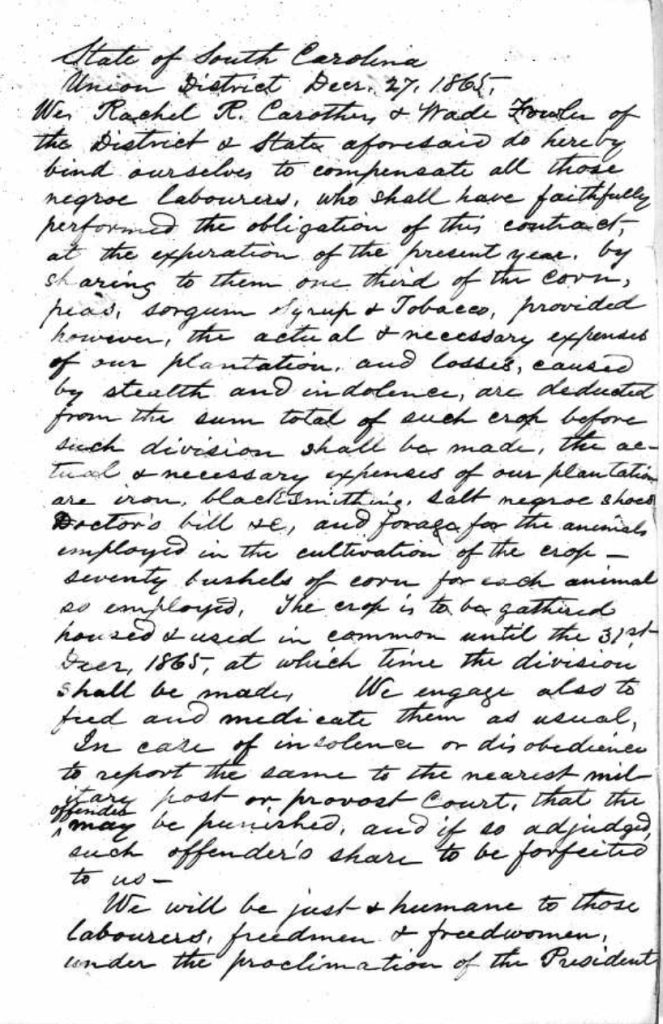 State of South Carolina
Union District Decr. 27, 1865,
We, Rachel R. Carothers & Wade Fowler of
the District & State aforesaid do hereby
bind ourselves to compensate all those
negroe labourers, who shall have faithfully
performed the obligation of this contract,
at the expiration of the present year, by
sharing to them one third of the corn,
peas, sorgum syrup & Tobacco, provided
however, the actual & necessary expenses
of our plantation, and losses, caused
by stealth and indolence, are deducted
from the sum total of such crop before
such division shall be made, the ac-
tual & necessary expenses of our plantation
are iron, blacksmithing, salt negroe shoes
Doctor's bill &c, and forage for the animals
employed in the cultivation of the crop —
seventy bushels of corn for each animal
so employed, The crop is to be gathered
housed & used in common until the 31st
Decr, 1865, at which time the division
shall be made, We engage also to
feed and medicate them as usual,
In case of insolence or disobedience
to report the same to the nearest mil-
itary post or provost Court, that the
offender may be punished, and if so adjudged,
such offender's share to be forfeited
to us —
We will be just & humane to those
labourers, freedmen & freedwomen,
under the proclimation of the President